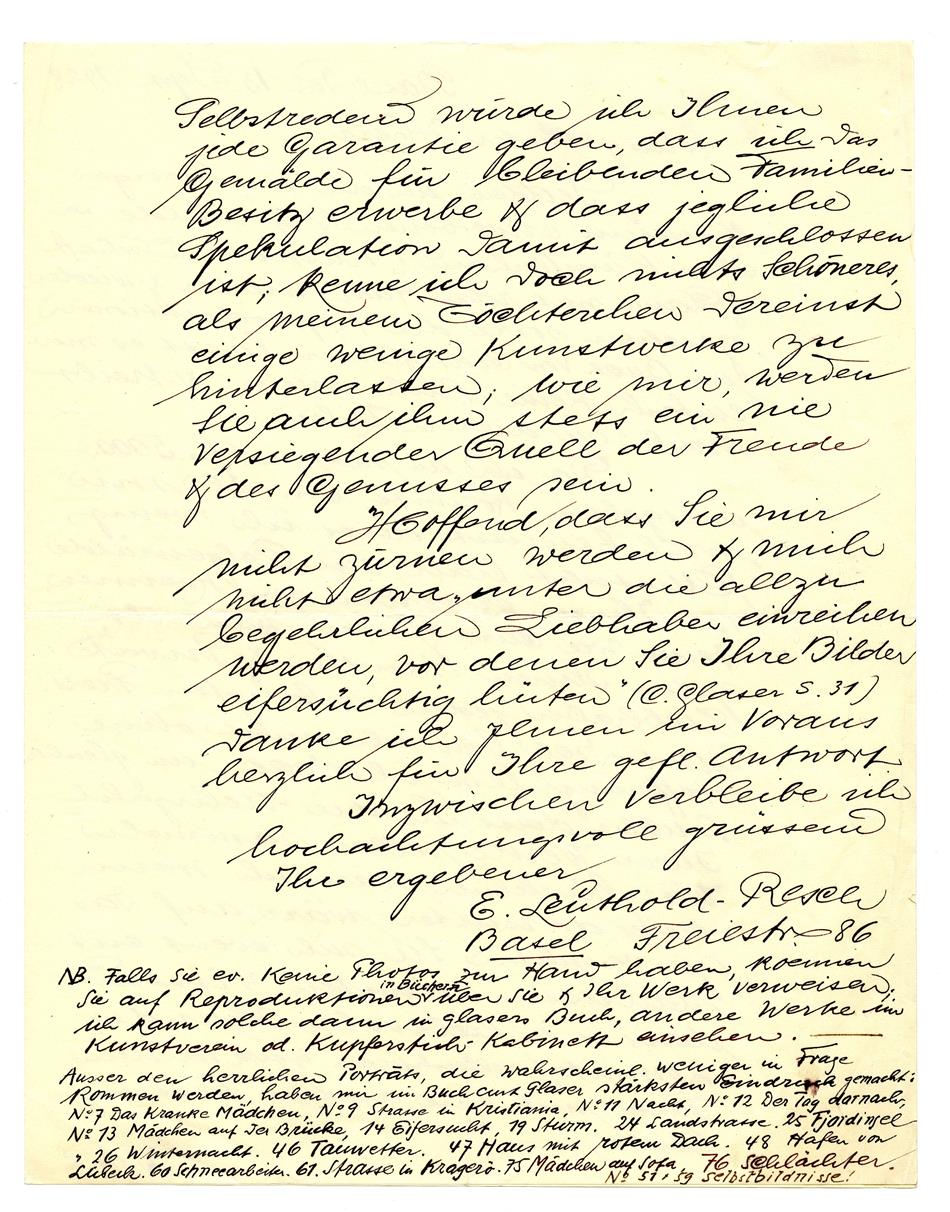 Selbstredend würde ich Ihnen
jede Garantie geben, dass ich das
Gemälde für bleibenden Familien-
Besitz erwerbe & dass jegliche
Spekulation damit ausgeschlossen
ist; kenne ich doch nichts Schöneres,
als meinem Töchterchen dereinst
einige wenige Kunstwerke zu
hinterlassen; wie mir, werden
Sie auch ihm stets ein nie
versiegender Quell der Freude
& des Genusses sein.
Hoffend, dass Sie mir
nicht zürnen werden & mich
nicht etwa „unter die allzu
begehrlichen Liebhaber einreihen
werden, vor denen Sie Ihre Bilder
eifersüchtig hüten" (C. Glaser S. 31)
danke ich Ihnen im Voraus
herzlich für Ihre gefl. Antwort
Inzwischen verbleibe ich
hochachtungsvoll grüssend
Ihr ergebener
E. Leuthold-Resch
Basel Freiestr. 86
NB. Falls Sie ev. keine Photos zur Hand haben, koennen
Sie auf Reproduktionen in Büchern über Sie & Ihr Werk verweisen;
ich kann solche dann in Glasers Buch, andere Werke im
Kunstverein od. Kupferstich-Kabinett einsehen.
Ausser den herrlichen Porträts, die wahrscheinl. weniger in Frage
kommen werden, haben mir im Buch Curt Glaser stärksten Eindruck gemacht:
No 7 Das Kranke Mädchen, No 9 Strasse in Kristiania, No 11 Nacht, No 12 Der Tag darnach,
No 13 Mädchen auf der Brücke, 14 Eifersucht, 19 Sturm. 24 Landstrasse. 25 Fjordinsel
" 26 Winternacht. 46 Tauwetter. 47 Haus mit rotem Dach. 48 Hafen von
Lübeck. 60 Schneearbeiter. 61. Strasse in Kragerö. 75 Mädchen auf Sofa. 76 Schlächter.
No 51 & 59 Selbstbildnisse!